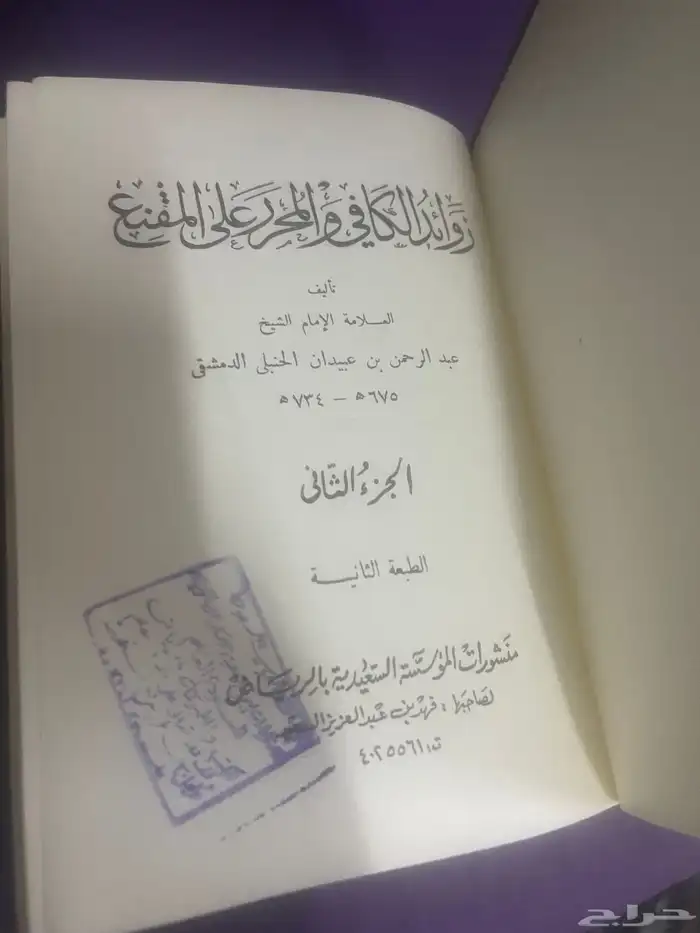 زَوَائِدُ الكَافِي وَالمُحَرَّرِ عَلى المُقْنِع
تأليف
العـــلامة الإمام الشيخ
عبد الرحمن بن عبيدان الحنبلى الدمشقى
٦٧٥ﻫ – ٧٣٤ﻫ
الجزءُ الثّانى
الطبعة الثانيــة
منشورات المؤسسة السعيدية بالرياض
لصاحبها : فهد بن عبد العزيز
ت: ٤٠٢٥٥٦١
حراج